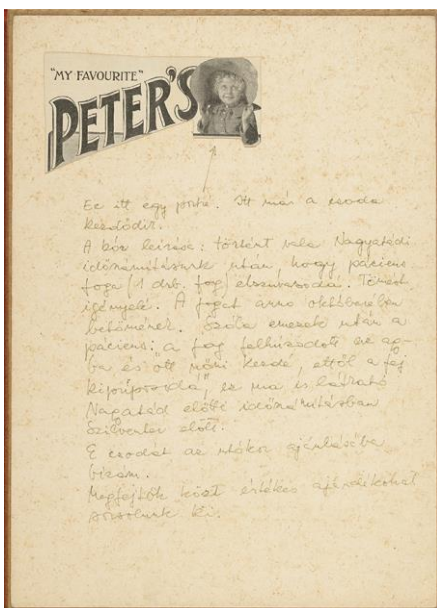 "MY FAVOURITE"
PETER'S
Ez itt egy portré. Itt már a csoda
kezdődik.
A kór leírása: történt vala Nagyatádi
időszámításunk után, hogy páciens
foga (1 drb. fog) elszuvasodá. Tömést
igényelé. A fogat anno októberében
betömének. Szóla emezek után a
páciens: a fog felhúzódott az agy-
ba és ott nőni kezde, ettől a fej
kipúposodá, ez ma is látható
Nagyatád előtti időszámításban
Szilveszter előtt.
E csodát az utókor ajánlásába
bízom.
Megfejtők közt értékes ajándékokat
sorsolunk ki.